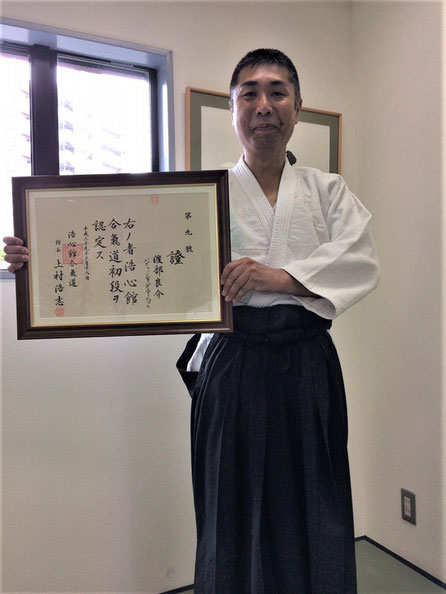 第九號
證
渡部良介
右ノ者浩心館
合氣道初段ヲ
認定ス
浩心館合氣道
館長 上村浩志